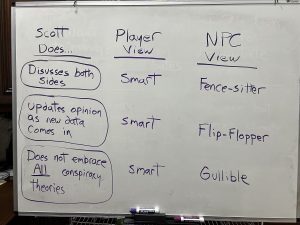 Scott
Does...
Player
View
NPC
View
Disusses both
Sides
Smart
Fence-sitter
Updates opinion
as new data
comes in
Smart
Flip-Flopper
Does not embrace
ALL conspiracy
theories
Smart
Gullible